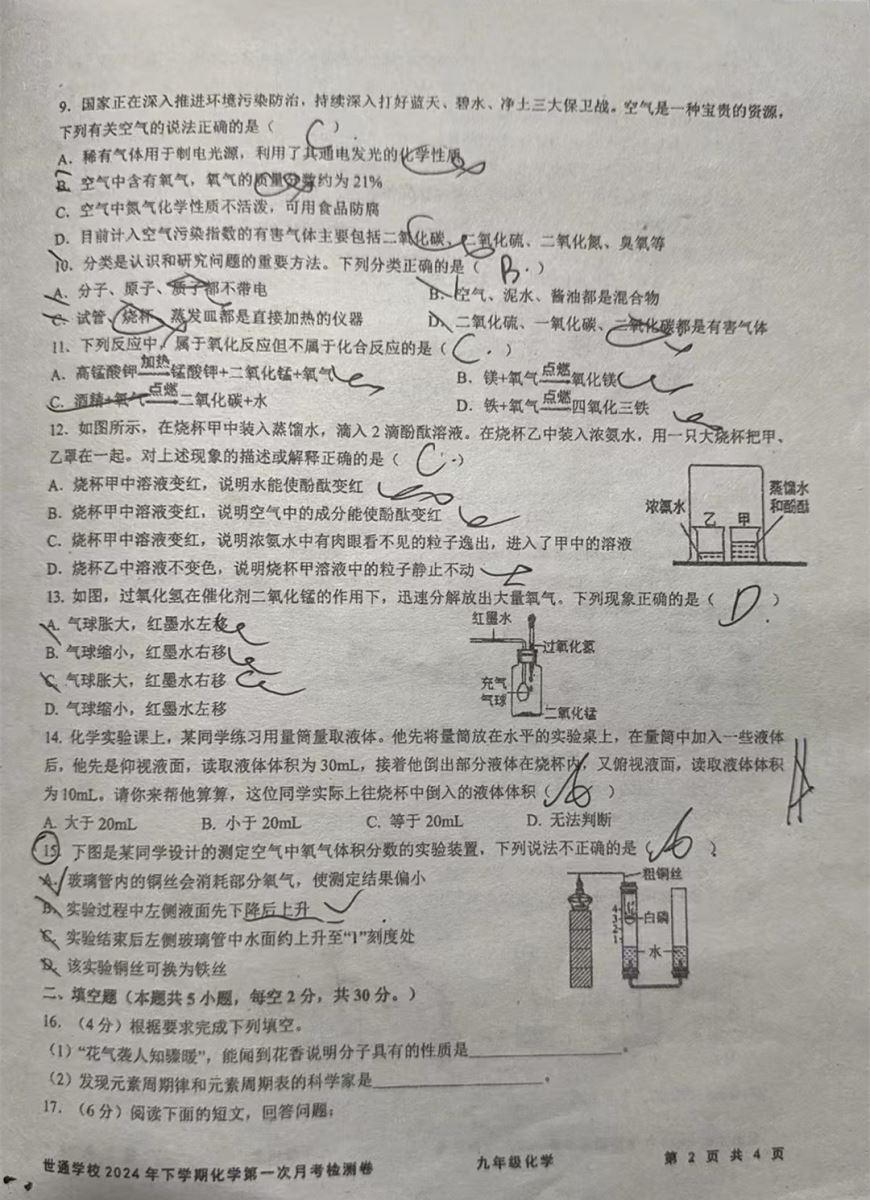 9. 国家正在深入推进环境污染防治，持续深入打好蓝天、碧水、净土三大保卫战。空气是一种宝贵的资源，
下列有关空气的说法正确的是（ C ）
A. 稀有气体用于制电光源，利用了其通电发光的化学性质
B. 空气中含有氧气，氧气的质量分数约为 21%
C. 空气中氮气化学性质不活泼，可用食品防腐
D. 目前计入空气污染指数的有害气体主要包括二氧化碳、二氧化硫、二氧化氮、臭氧等
10. 分类是认识和研究问题的重要方法。下列分类正确的是（ B ）
A. 分子、原子、质子都不带电 B. 空气、泥水、酱油都是混合物
C. 试管、烧杯、蒸发皿都是直接加热的仪器 D. 二氧化硫、一氧化碳、二氧化碳都是有害气体
11、下列反应中，属于氧化反应但不属于化合反应的是（ C ）
A. 高锰酸钾 加热 锰酸钾+二氧化锰+氧气 B. 镁+氧气 点燃 氧化镁
C. 酒精+氧气 点燃 二氧化碳+水 D. 铁+氧气 点燃 四氧化三铁
12. 如图所示，在烧杯甲中装入蒸馏水，滴入 2 滴酚酞溶液。在烧杯乙中装入浓氨水，用一只大烧杯把甲、
乙罩在一起。对上述现象的描述或解释正确的是（ C ）
A. 烧杯甲中溶液变红，说明水能使酚酞变红
B. 烧杯甲中溶液变红，说明空气中的成分能使酚酞变红
C. 烧杯甲中溶液变红，说明浓氨水中有肉眼看不见的粒子逸出，进入了甲中的溶液
D. 烧杯乙中溶液不变色，说明烧杯甲溶液中的粒子静止不动
浓氨水 乙 甲 蒸馏水和酚酞
13. 如图，过氧化氢在催化剂二氧化锰的作用下，迅速分解放出大量氧气。下列现象正确的是（ D ）
A. 气球胀大，红墨水左移
B. 气球缩小，红墨水右移
C. 气球胀大，红墨水右移
D. 气球缩小，红墨水左移
红墨水
过氧化氢
充气气球
二氧化锰
14. 化学实验课上，某同学练习用量筒量取液体。他先将量筒放在水平的实验桌上，在量筒中加入一些液体
后，他先是仰视液面，读取液体体积为 30mL，接着他倒出部分液体在烧杯内，又俯视液面，读取液体体积
为 10mL。请你来帮他算算，这位同学实际上往烧杯中倒入的液体体积（ ）
A. 大于 20mL B. 小于 20mL C. 等于 20mL D. 无法判断
15. 下图是某同学设计的测定空气中氧气体积分数的实验装置，下列说法不正确的是（ ）
A. 玻璃管内的铜丝会消耗部分氧气，使测定结果偏小
B. 实验过程中左侧液面先下降后上升
C. 实验结束后左侧玻璃管中水面约上升至“1”刻度处
D. 该实验铜丝可换为铁丝
粗铜丝
4
3
2
1
白磷
水
二、填空题（本题共 5 小题，每空 2 分，共 30 分。）
16.（4 分）根据要求完成下列填空。
（1）“花气袭人知骤暖”，能闻到花香说明分子具有的性质是____________。
（2）发现元素周期律和元素周期表的科学家是____________。
17.（6 分）阅读下面的短文，回答问题：
世通学校 2024 年下学期化学第一次月考检测卷 九年级化学 第 2 页 共 4 页